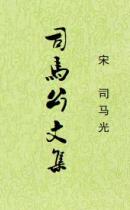 宋 司马光
司馬公文集